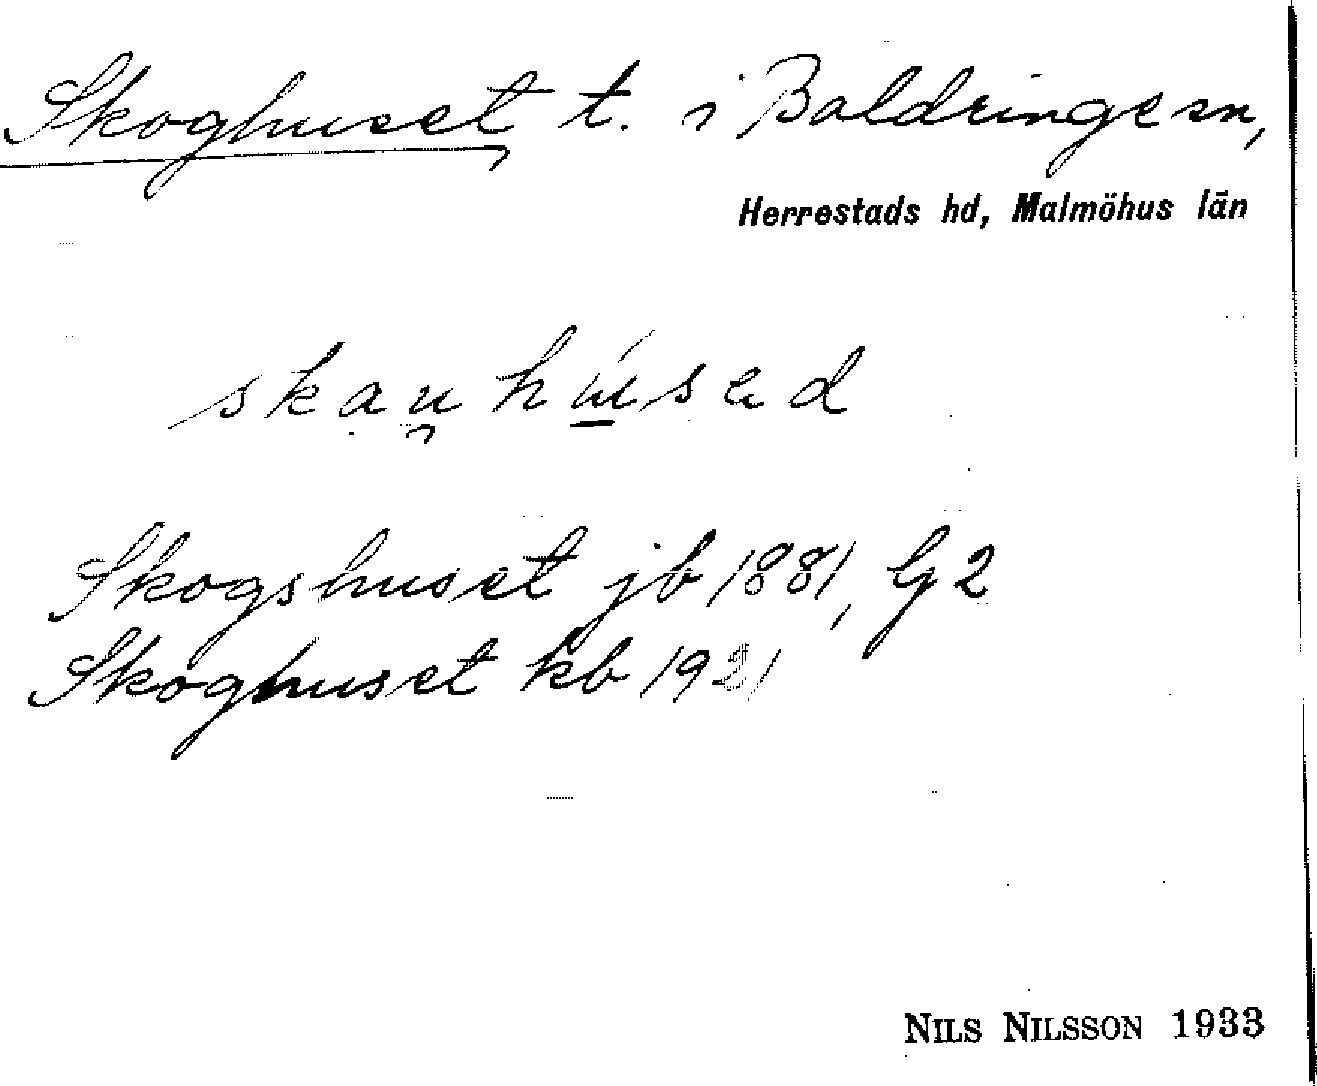 Skoghuset t. i Baldringe sn,
Herrestads hd, Malmöhus län
skau̯hú̱sed
Skogshuset jb 1881, G2
Skoghuset kb 1921
NILS NILSSON 1933